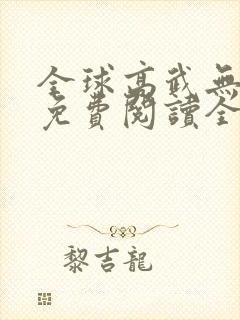 全球高武無
免費閱讀全
黎吉龍